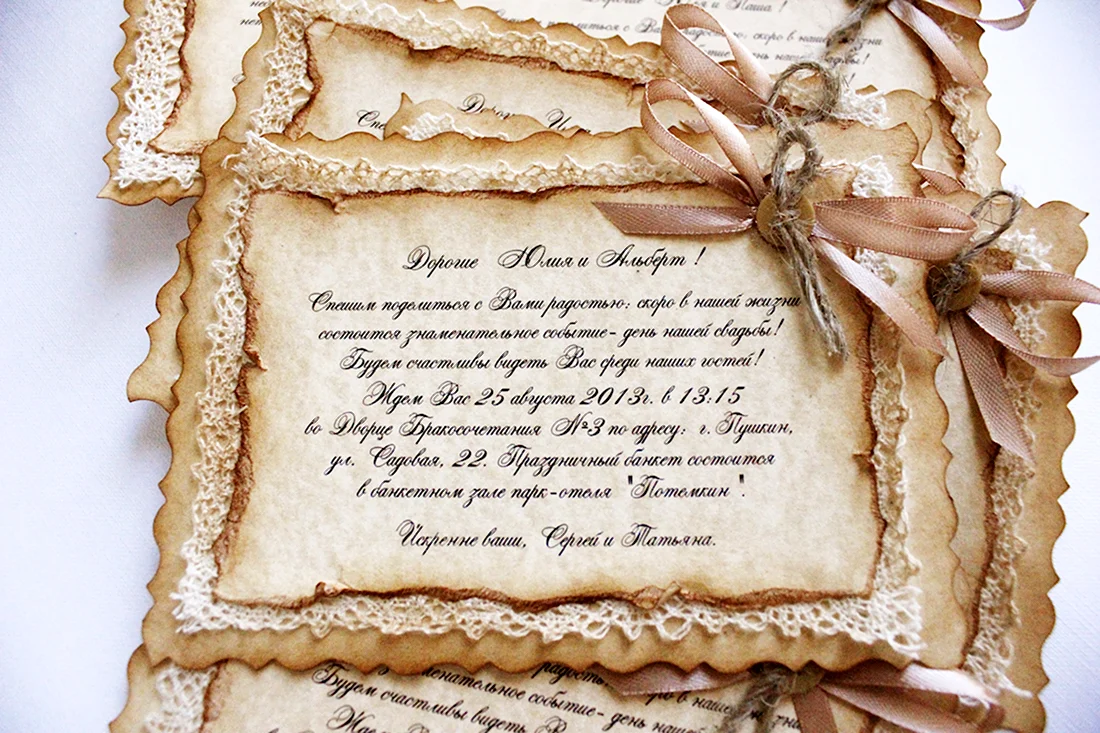 Юлия и Паша !
Вами радостью: скоро в нашей жизни
Дорогие Юлия и Альберт !
Спешим поделиться с Вами радостью: скоро в нашей жизни
состоится знаменательное событие- день нашей свадьбы!
Будем счастливы видеть Вас среди наших гостей!
Ждем Вас 25 августа 2013г. в 13:15
во Дворце Бракосочетания №3 по адресу: г. Пушкин,
ул. Садовая, 22. Праздничный банкет состоится
в банкетном зале парк-отеля "Потемкин".
Искренне ваши, Сергей и Татьяна.
событие- день нашей
Будем счастливы видеть Вас